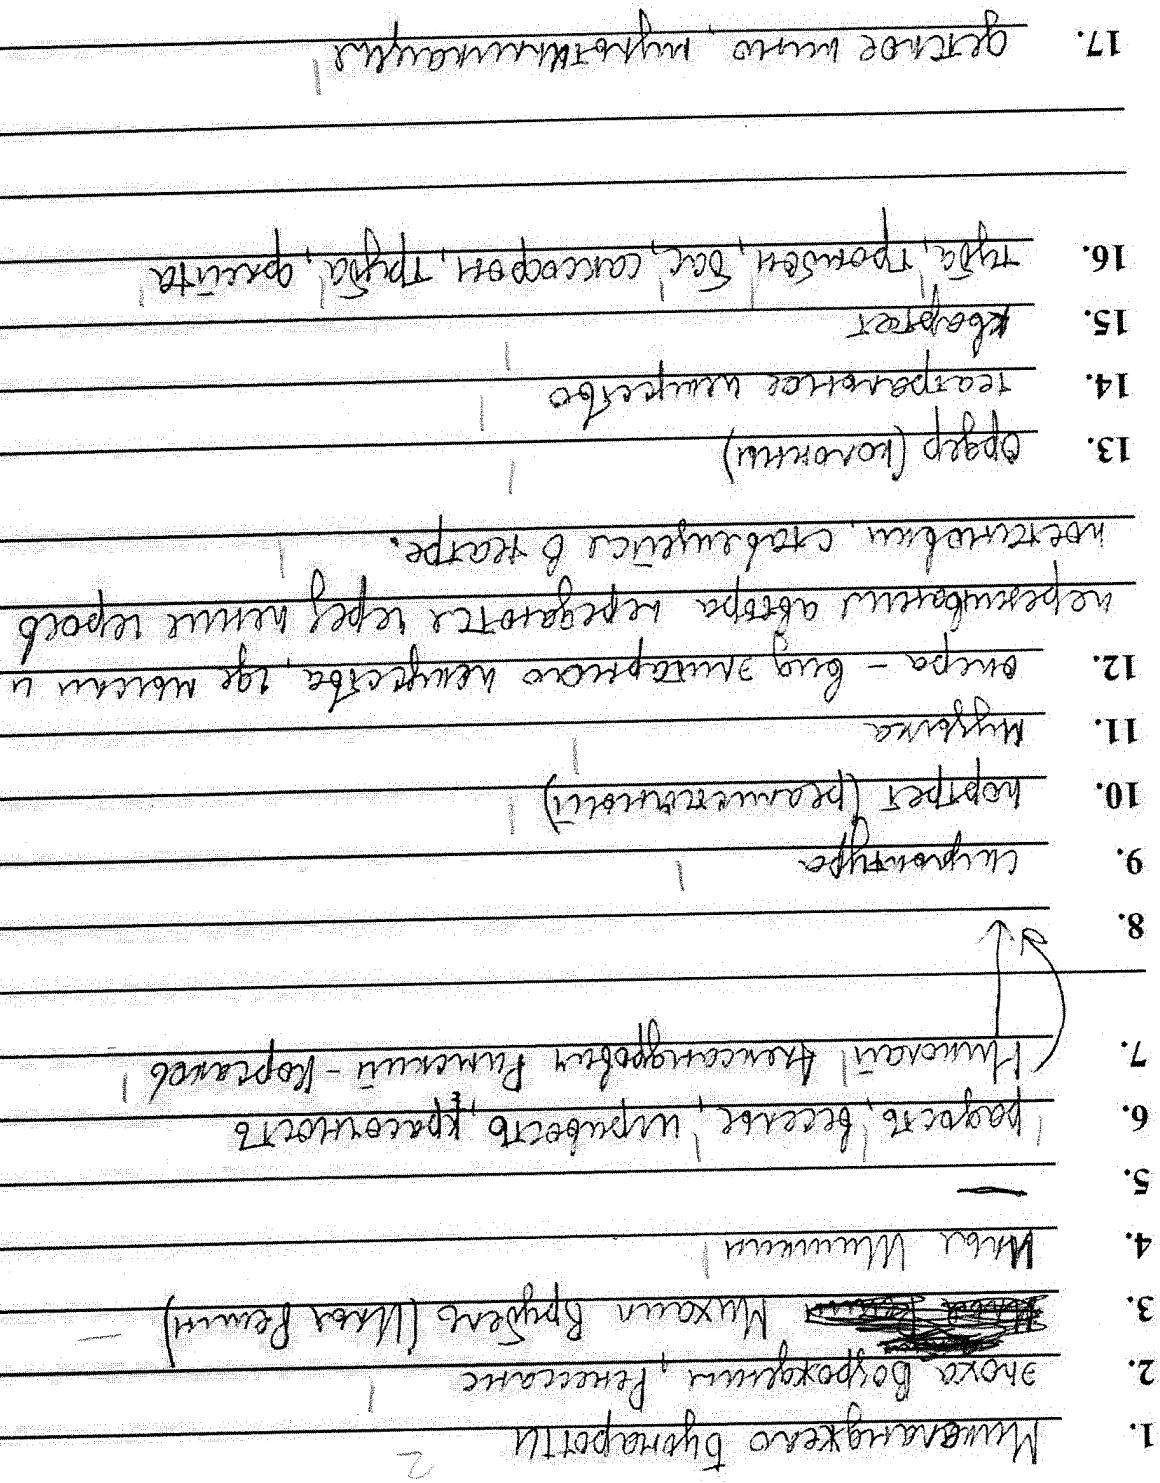 1. Микеланджело Буонаротти
2
2. эпоха Возрождения, Ренессанс
3. Михаил Врубель (Илья Репин)
4. Илья Шишкин
5. —
6. радость, веселье, игривость, красочность
7. Николай Александрович Римский-Корсаков
8.
9. скульптура
10. портрет (реалистичный)
11. музыка
12. опера – вид элитарного искусства, где мысли и
переживания автора передаются через пение героев
постановки, ставящейся в театре.
13. Ордер (колонны)
14. театральное искусство
15. квартет
16. туба, тромбон, бас, саксофон, труба, флейта
17. детское кино, мультипликация